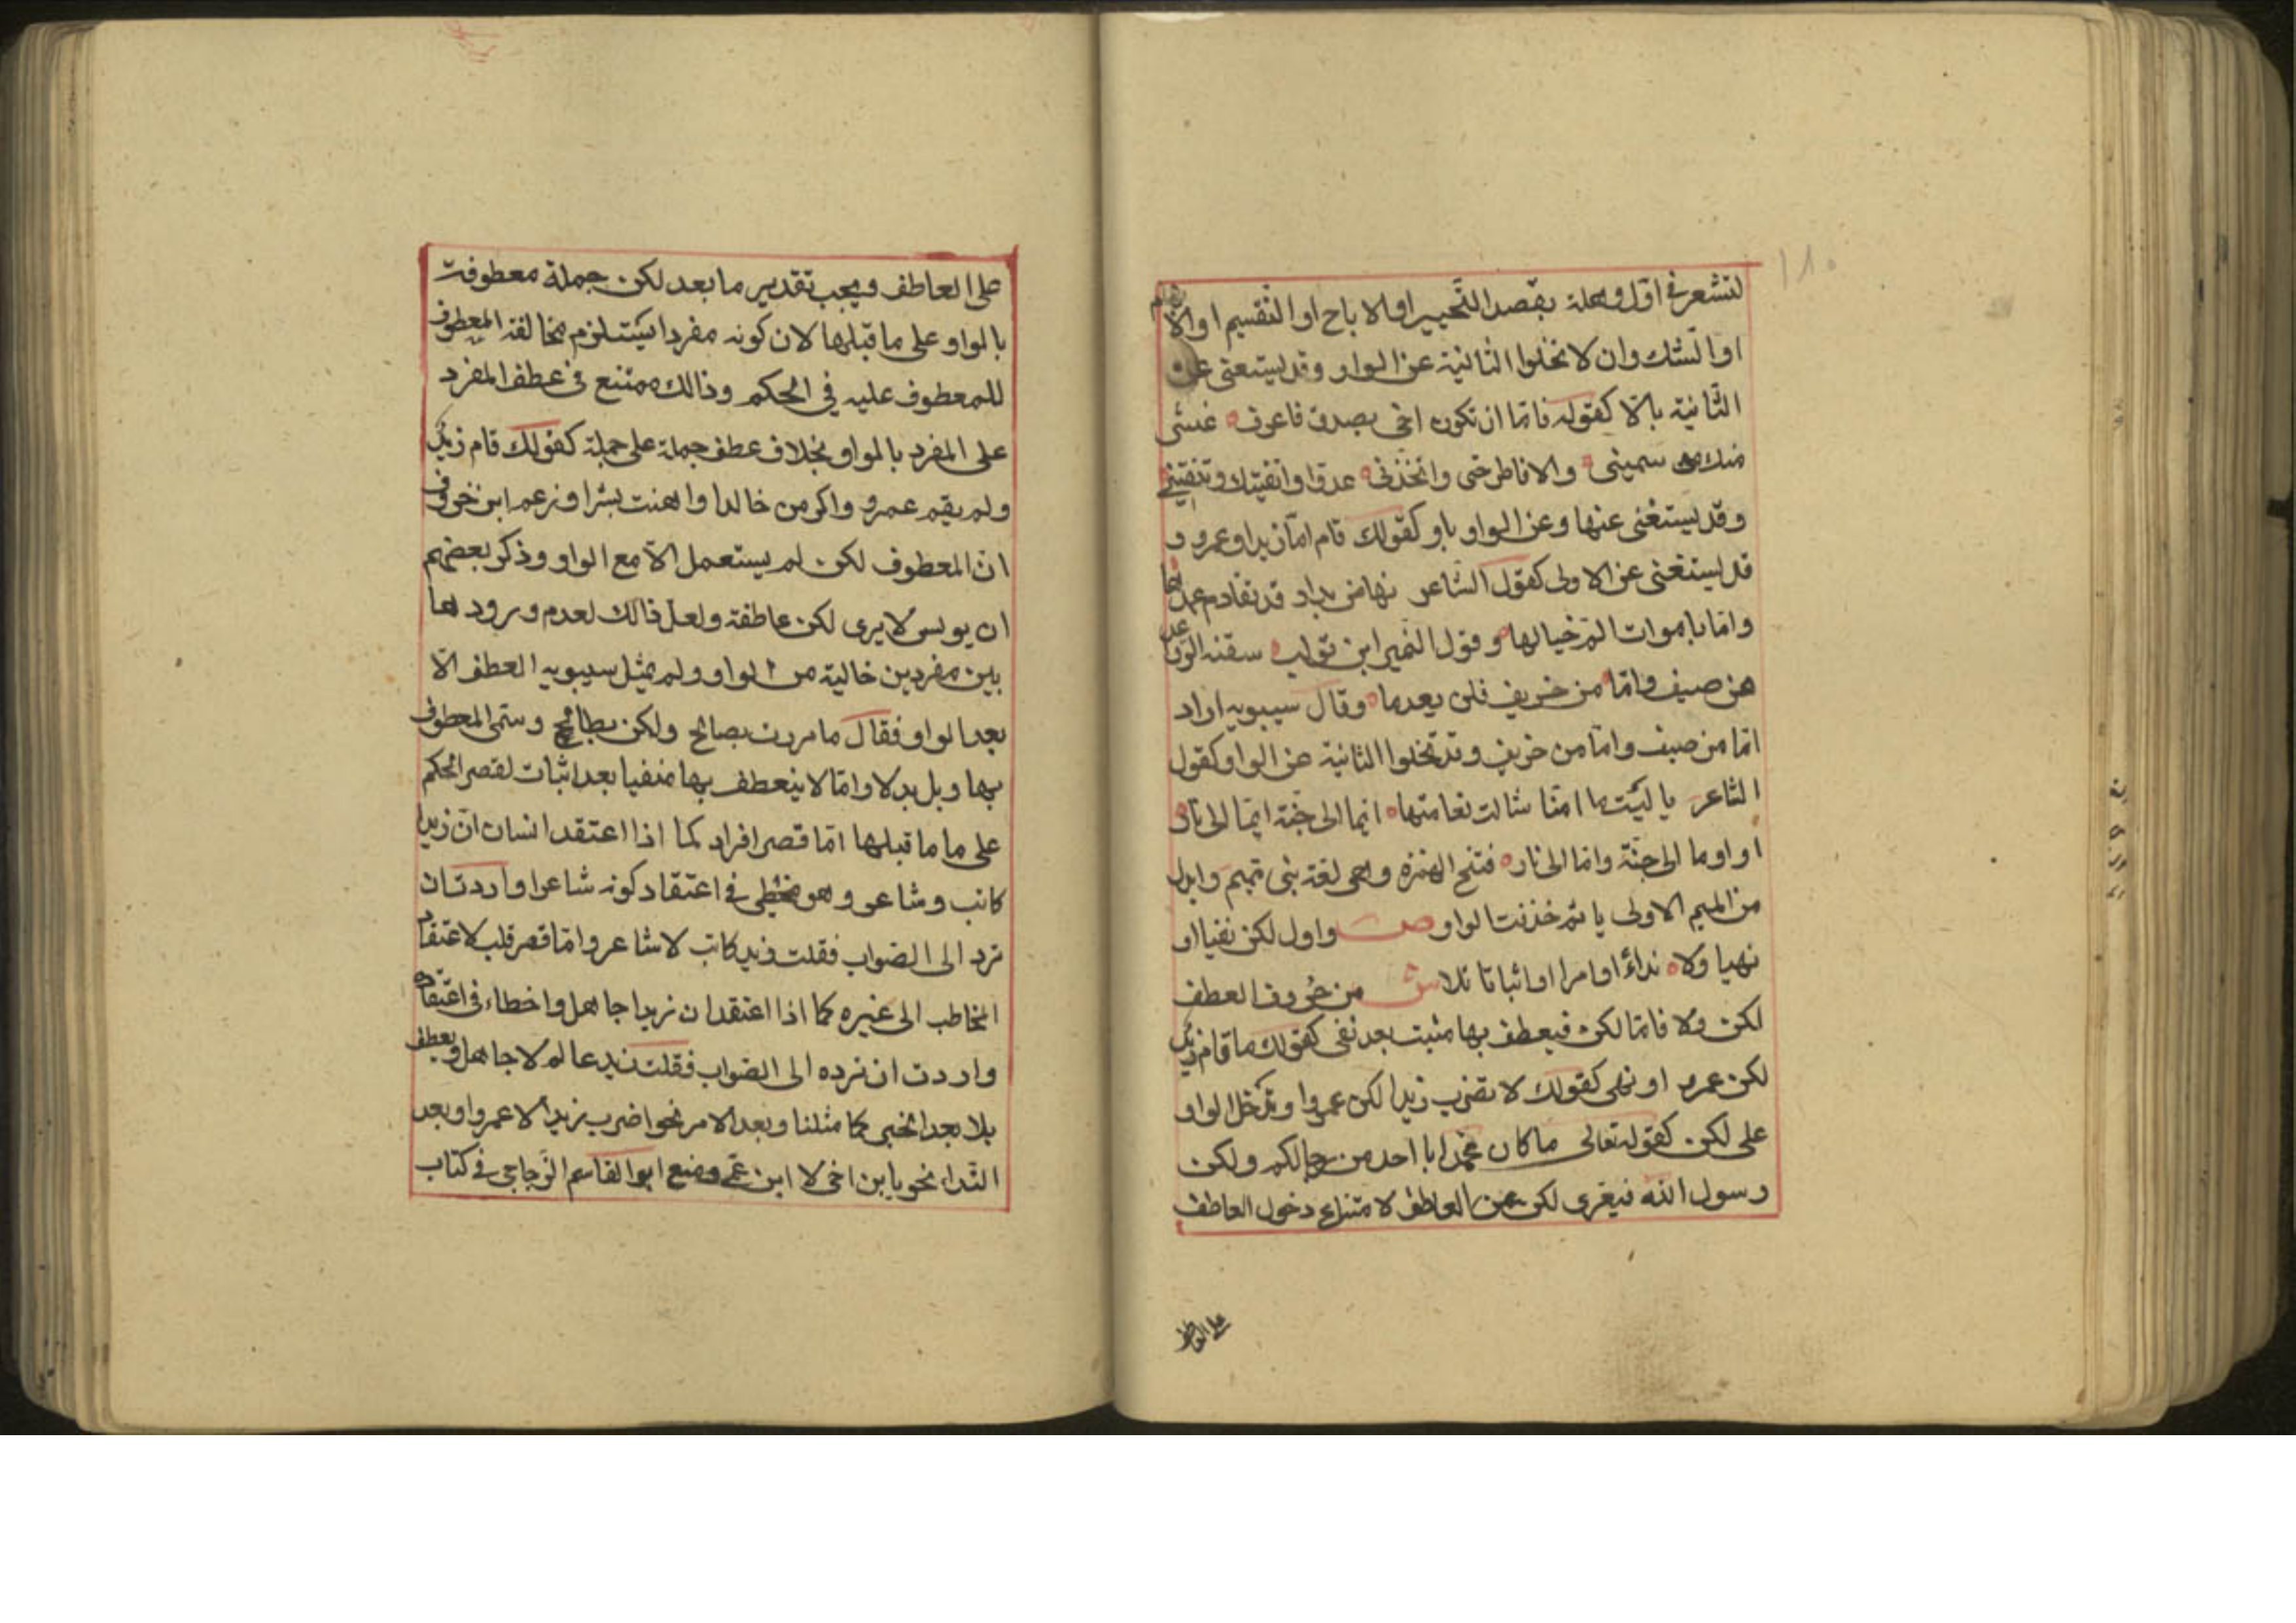 ١٨٠
لتشعر في اوّل وهلة بقصد التّخيير او الاباح او التّقسيم او الابهام
او الشّك وان لا تخلوا الثانية عن الواو وقد يستغنى عن
الثّانية بالاّ كقوله فامّا ان تكون اخى بصدق فاعرف غثّى
منك سمينى والا فاطرحنى واتّخذنى عدوّا واتّقيتك وتتقينى
وقد يستغنى عنها وعن الواو باو كقولك قام امّا زيد او عمرو و
قد يستغنى عن الاولى كقول الشاعر نهاض بدار قد تقادم عهدها
وامّا باموات المّ خيالها وقول النّمير ابن تولب سقته الرّواعد
من صيف وامّا من خريف فلن يعدما وقال سيبويه اراد
امّا من صيف وامّا من خريف وقد تخلوا الثانية عن الواو كقول
الشاعر يا ليتما امّنا شالت نعامتها ايما الى جنّة ايمّا الى نار
او اوما الى جنّة وامّا الى نار فتح الهمزة وهى لغة بنى تميم وابدل
من الميم الاولى يا ثمّ حذفت الواو ص واول لكن نفيا او
نهيا ولا نداءً او امرا او اثباتا تلا ش من حُروف العطف
لكن ولا فامّا لكن فيعطف بها مثبت بعد نفى كقولك ما قام زيدٌ
لكن عمرو او نهى كقولك لا تضرب زيدا لكن عمروا وتدخل الواو
على لكن كقوله تعالى ما كان محمّد ابا احد من رجالكم ولكن
رسول الله فيعرى لكن عن العاطف لامتناع دخول العاطف
على العاطف
على العاطف ويجب تقدير ما بعد لكن جملة معطوفت
بالواو على ما قبلها لان كونه مفردا يستلزم مخالفة المعطوف
للمعطوف عليه فى الحكم وذالك ممتنع فى عطف المفرد
على المفرد بالواو بخلاف عطف جملة على جملة كقولك قام زيدٌ
ولم يقم عمرو واكرمت خالدا واهنت بشرا وزعم ابن خروف
انّ المعطوف لكن لم يستعمل الاّ مع الواو وذكر بعضهم
ان يونس لا يرى لكن عاطفة ولعلّ ذالك لعدم ورودها
بين مفردين خالية من الواو ولم يمثل سيبويه العطف الاّ
بعد الواو فقال ما مررت بصالح ولكن بطالح وسمّى المعطوف
بها وبل بدلا وامّا لا ينعطف بها منفيا بعد اثبات لقصر الحكم
على ما ما قبلها امّا قصر افراد كما اذا اعتقد انسان انّ زيدا
كاتب وشاعر وهو مخطى فى اعتقاد كونه شاعرا واردت ان
ترد الى الصّواب فقلت زيد كاتب لا شاعر وامّا قصر قلب لاعتقاد
المخاطب الى غيره كما اذا اعتقد ان زيدا جاهل واخطاء فى اعتقاده
واردت ان ترده الى الصّواب فقلت زيد عالم لا جاهل ويعطف
بلا بعد الخبر كما مثلنا وبعد الامر نحو اضرب زيدا لا عمروا وبعد
النّدا نحو يا بن اخى لا ابن عمّى ومنع ابو القاسم الزّجاجى فى كتاب